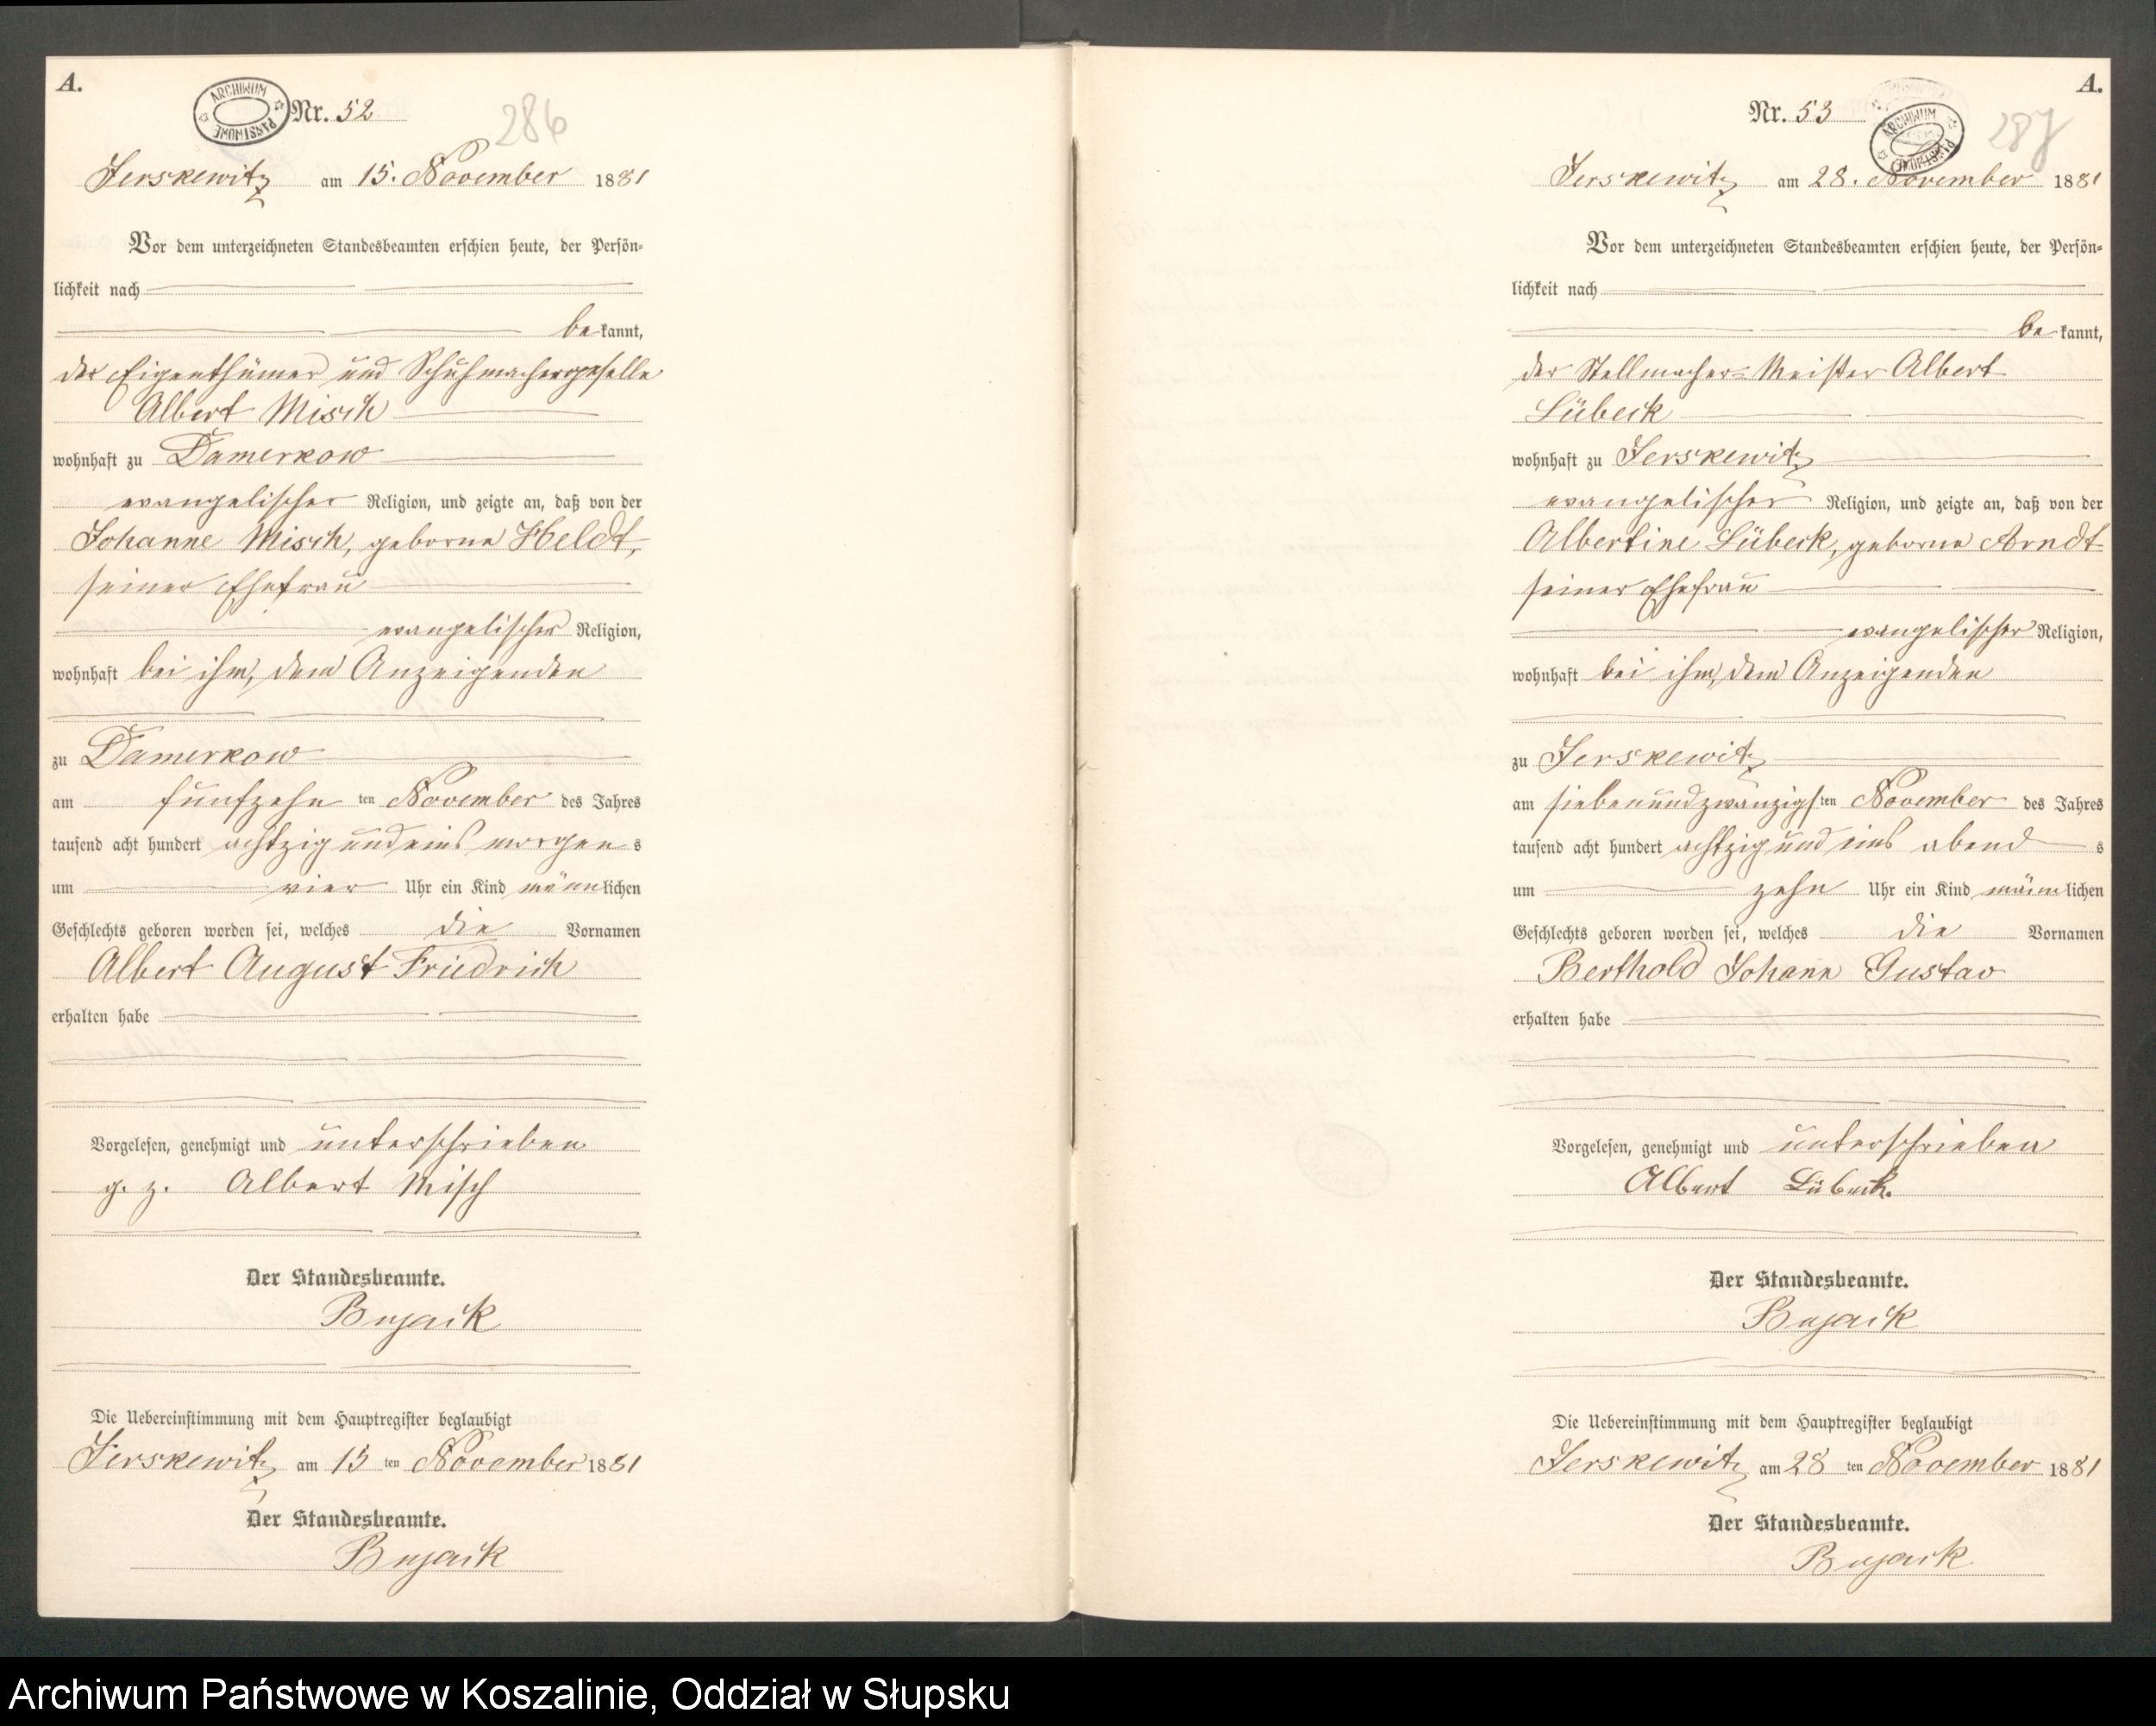 A.
ARCHIWUM PAŃSTWOWE
Nr. 52
286
Jerskewitz am 15. November 1881
Vor dem unterzeichneten Standesbeamten erschien heute, der Persön-
lichkeit nach
be kannt,
der Eigenthümer und Schuhmachergeselle
Albert Misch
wohnhaft zu Damerkow
evangelischer Religion, und zeigte an, daß von der
Johanne Misch, geborne Heldt,
seiner Ehefrau
evangelischer Religion,
wohnhaft bei ihm, dem Anzeigenden
zu Damerkow
am fünfzehn ten November des Jahres
tausend acht hundert achtzig und eins morgen s
um vier Uhr ein Kind männlichen
Geschlechts geboren worden sei, welches die Vornamen
Albert August Friedrich
erhalten habe
Vorgelesen, genehmigt und unterschrieben
g. z. Albert Misch
Der Standesbeamte.
Bujack
Die Uebereinstimmung mit dem Hauptregister beglaubigt
Jerskewitz am 15 ten November 1881
Der Standesbeamte.
Bujack
A.
Nr. 53
ARCHIWUM PAŃSTWOWE
287
Jerskewitz am 28. November 1881
Vor dem unterzeichneten Standesbeamten erschien heute, der Persön-
lichkeit nach
be kannt,
der Stellmacher-Meister Albert
Lübeck
wohnhaft zu Jerskewitz
evangelischer Religion, und zeigte an, daß von der
Albertine Lübeck, geborne Arndt
seiner Ehefrau
evangelischer Religion,
wohnhaft bei ihm, dem Anzeigenden
zu Jerskewitz
am siebenundzwanzigsten November des Jahres
tausend acht hundert achtzig und eins abend s
um zehn Uhr ein Kind männlichen
Geschlechts geboren worden sei, welches die Vornamen
Berthold Johann Gustav
erhalten habe
Vorgelesen, genehmigt und unterschrieben
Albert Lübeck.
Der Standesbeamte.
Bujack
Die Uebereinstimmung mit dem Hauptregister beglaubigt
Jerskewitz am 28 ten November 1881
Der Standesbeamte.
Bujack
Archiwum Państwowe w Koszalinie, Oddział w Słupsku